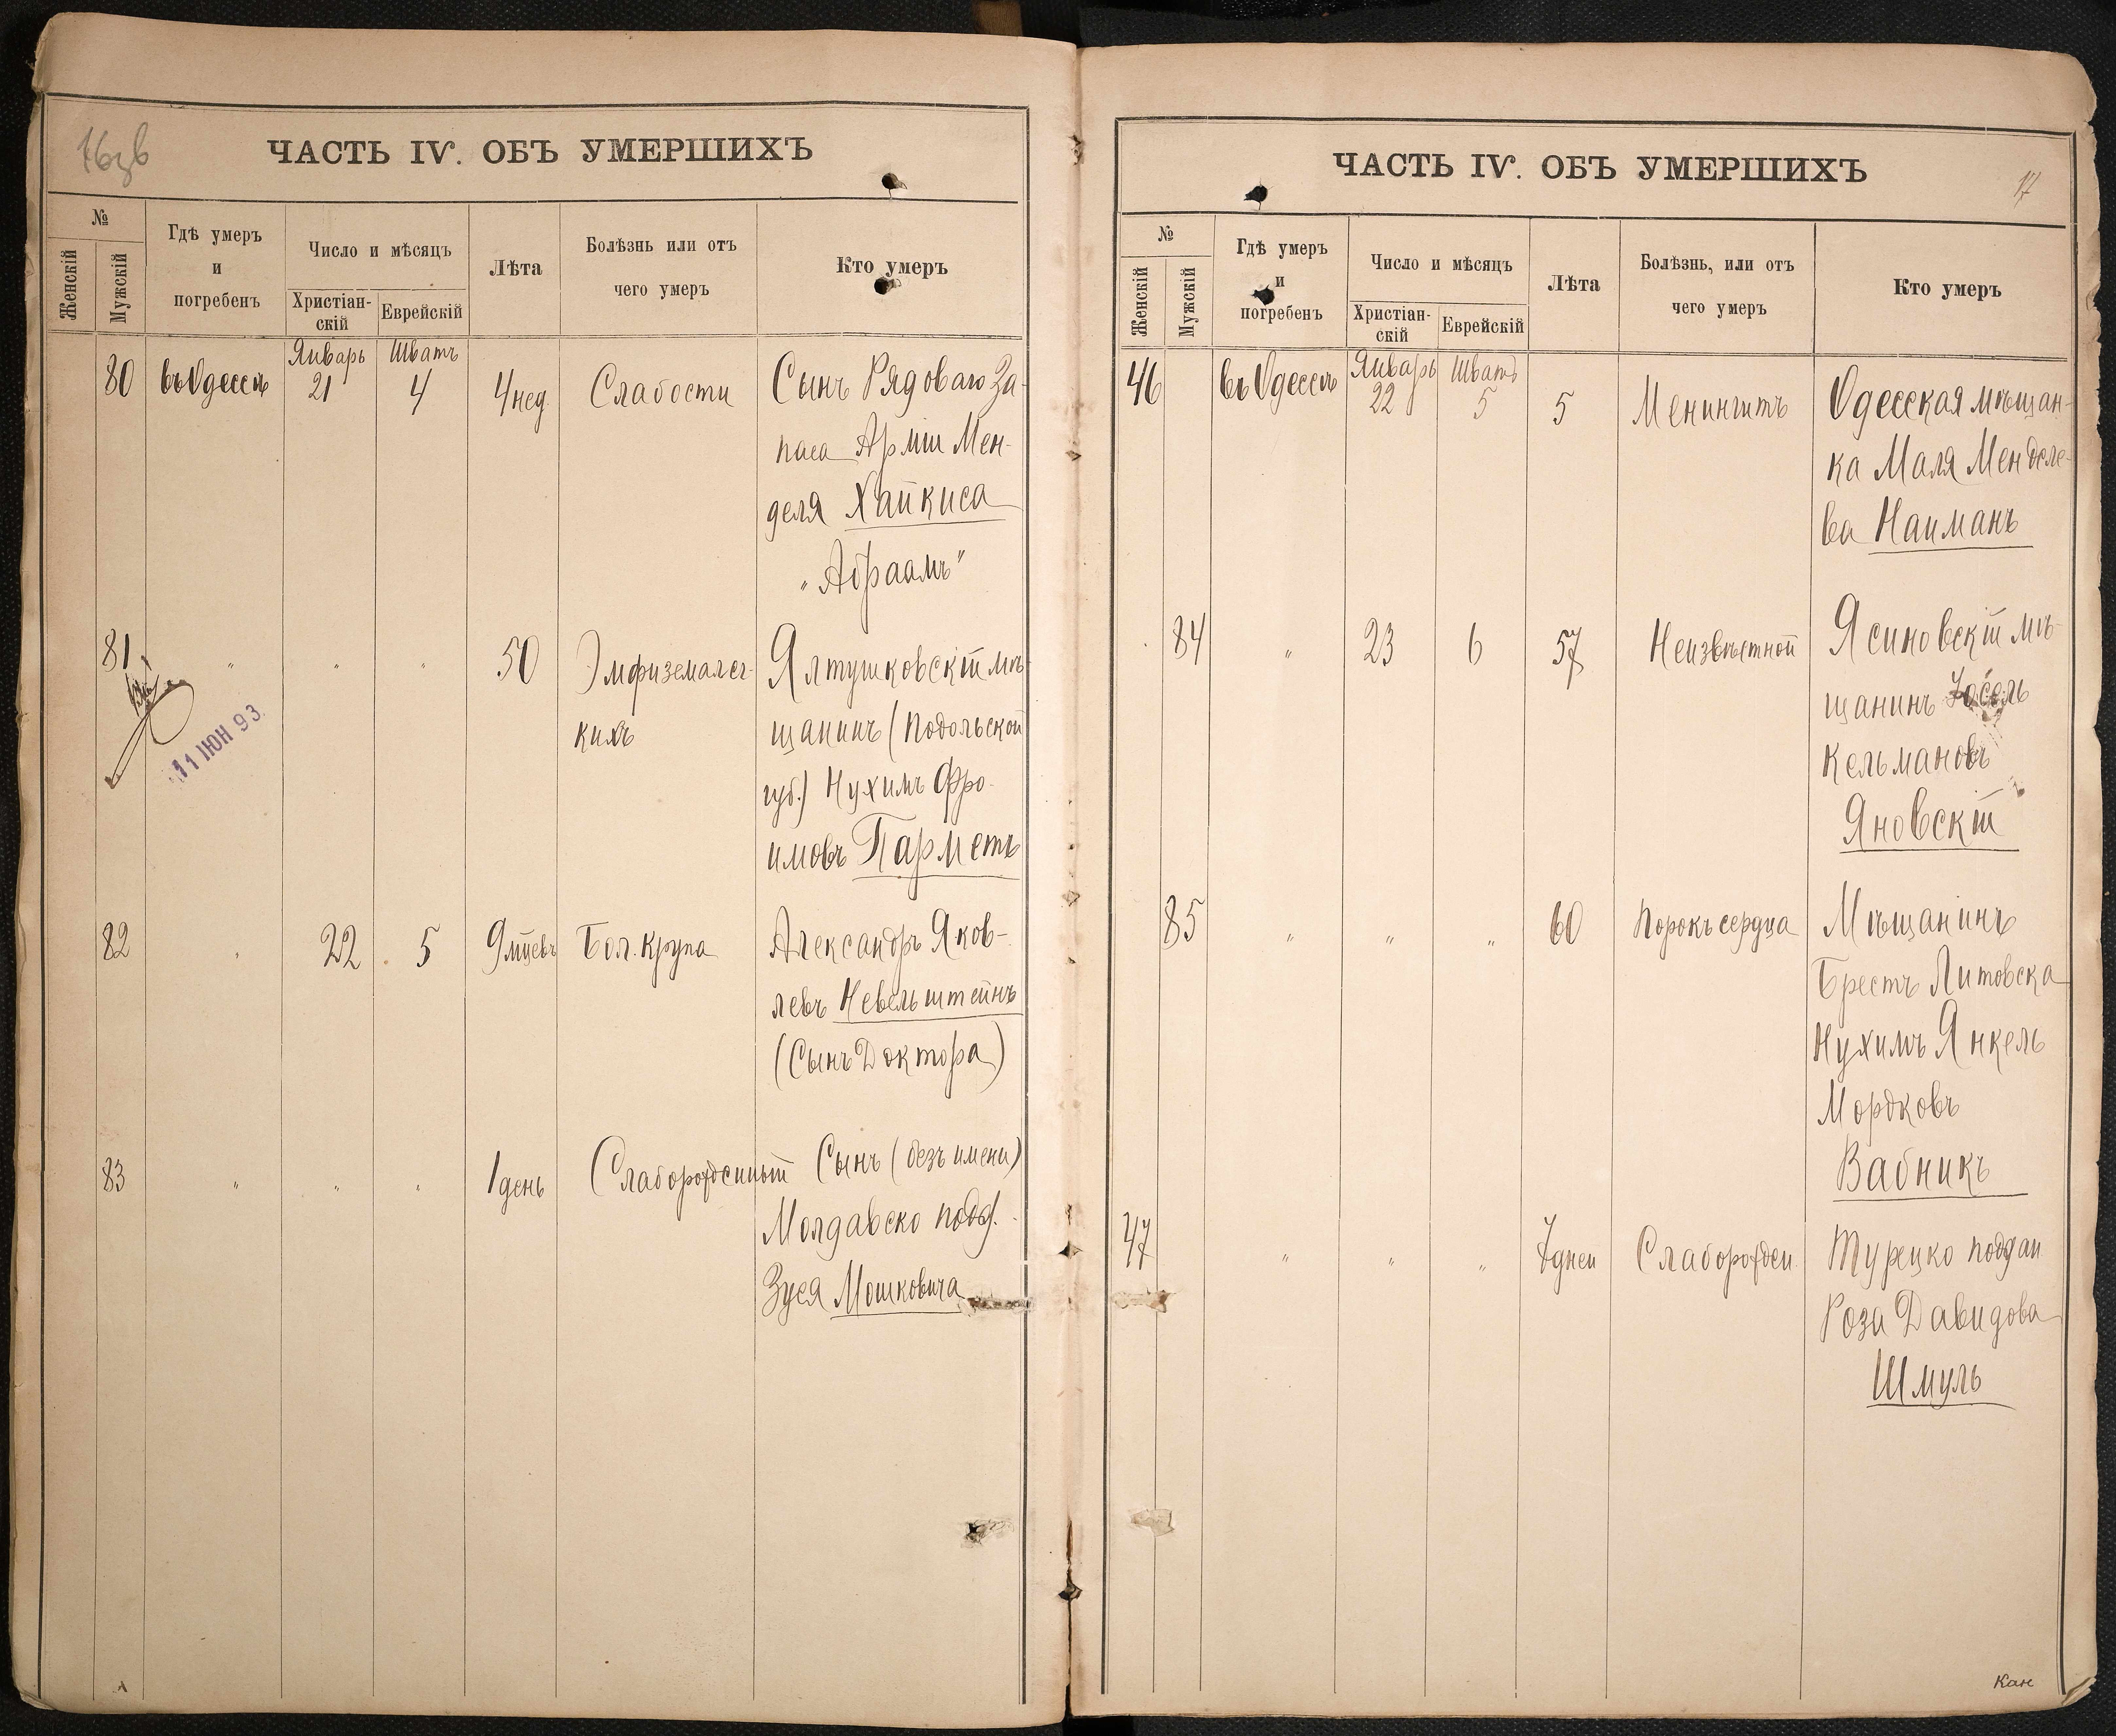 16зв
ЧАСТЬ IV. ОБЪ УМЕРШИХЪ
№
Женскій
Мужскій
Гдѣ умеръ
и
погребенъ
Число и мѣсяцъ
Христіан-
скій
Еврейскій
Лѣта
Болѣзнь или отъ
чего умеръ
Кто умеръ
80 въ Одессѣ Январь 21 Шватъ 4 4 нед. Слабости Сынъ Рядоваго За-
паса Арміи Мен-
деля Хайкиса
„Абраамъ"
81 " " " 50 Эмфизема лег- Ялтушковскій мѣ-
кихъ щанинъ (Подольской
губ.) Нухимъ Фро-
имовъ Парметъ
11 ІЮН 93
82 " 22 5 9 мцевъ Бол. крупа Александръ Яков-
левъ Невельштейнъ
(Сынъ Доктора)
83 " " " 1 день Слаборожденный Сынъ (безъ имени)
Молдавско подд.
Зуся Мошковича
ЧАСТЬ IV. ОБЪ УМЕРШИХЪ
17
№
Женскій
Мужскій
Гдѣ умеръ
и
погребенъ
Число и мѣсяцъ
Христіан-
скій
Еврейскій
Лѣта
Болѣзнь, или отъ
чего умеръ
Кто умеръ
46 въ Одессѣ Январь 22 Шватъ 5 5 Менингитъ Одесская мѣщан-
ка Маля Менделе-
ва Найманъ
84 " 23 6 57 Неизвѣстной Ясиновскій мѣ-
щанинъ Іосель
Кельмановъ
Яновскій
85 " " " 60 Порокъ сердца Мѣщанинъ
Брестъ Литовска
Нухимъ Янкель
Мордковъ
Вабникъ
47 " " " 7 дней Слаборожден. Турецко поддан.
Роза Давидова
Шмуль
Кан